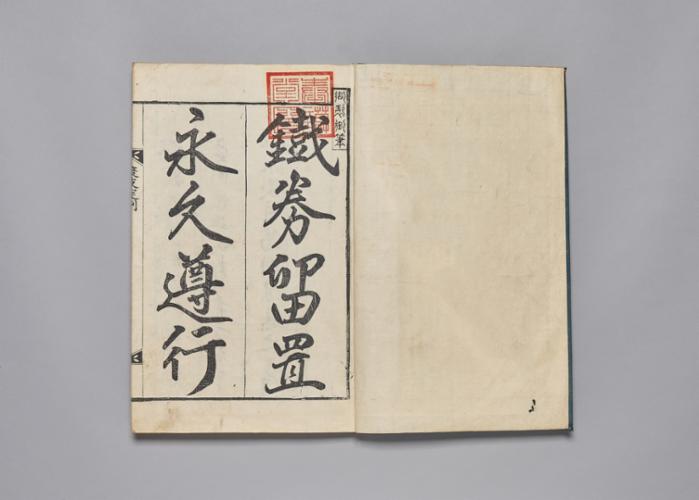 御製御筆
鐵券留置
永久遵行